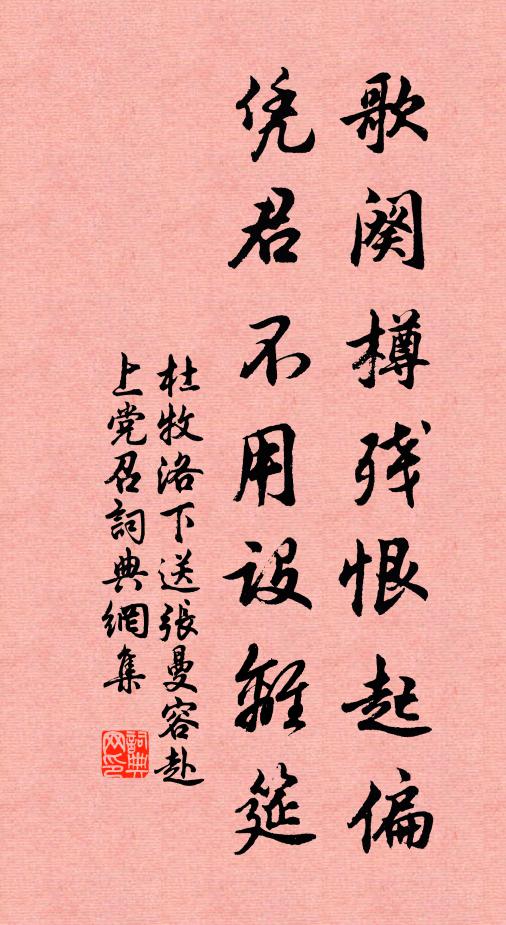 歌阕樽残恨起偏
凭君不用设離筵
杜牧洛下送張曼容赴
上党召詞典網集
詞典
网印